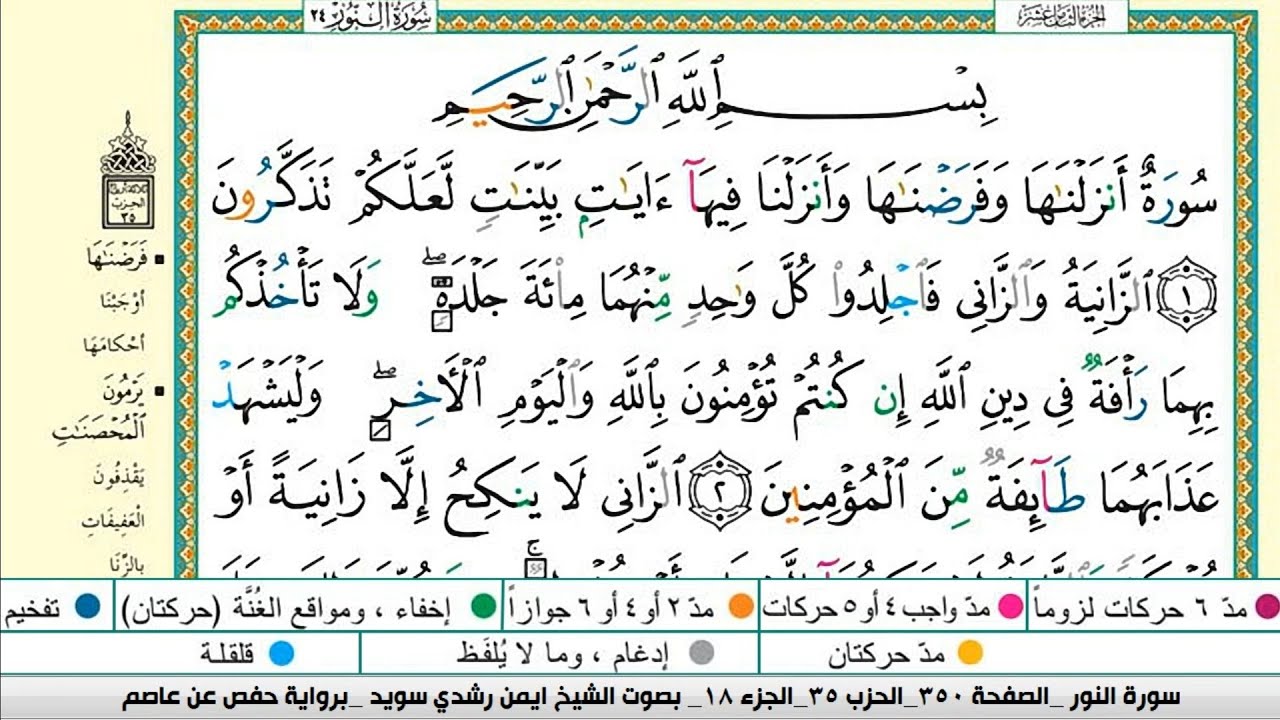 سُورَةُ النُّورِ ٢٤
الجزء الثامن عشر
بِسْمِ ٱللَّهِ ٱلرَّحْمَٰنِ ٱلرَّحِيمِ
سُورَةٌ أَنزَلْنَٰهَا وَفَرَضْنَٰهَا وَأَنزَلْنَا فِيهَآ ءَايَٰتٍۭ بَيِّنَٰتٍ لَّعَلَّكُمْ تَذَكَّرُونَ
١ ٱلزَّانِيَةُ وَٱلزَّانِى فَٱجْلِدُوا۟ كُلَّ وَٰحِدٍ مِّنْهُمَا مِا۟ئَةَ جَلْدَةٍ ۖ وَلَا تَأْخُذْكُم
بِهِمَا رَأْفَةٌ فِى دِينِ ٱللَّهِ إِن كُنتُمْ تُؤْمِنُونَ بِٱللَّهِ وَٱلْيَوْمِ ٱلْأَخِرِ ۖ وَلْيَشْهَدْ
عَذَابَهُمَا طَآئِفَةٌ مِّنَ ٱلْمُؤْمِنِينَ ٢ ٱلزَّانِى لَا يَنكِحُ إِلَّا زَانِيَةً أَوْ
الحزب
٣٥
فَرَضْنَٰهَا
أَوْجَبْنَا
أَحْكَامَهَا
يَرْمُونَ
ٱلْمُحْصَنَٰتِ
يَقْذِفُونَ
الْعَفِيفَاتِ
بِالزِّنَا
مدّ ٦ حركات لزوماً
مدّ واجب ٤ أو ٥ حركات
مدّ ٢ أو ٤ أو ٦ جوازاً
إخفاء ، ومواقع الغُنَّة (حركتان)
تفخيم
مدّ حركتان
إدغام ، وما لا يُلفَظ
قلقلة
سورة النور _الصفحة ٣٥٠_الحزب ٣٥_الجزء ١٨_ بصوت الشيخ ايمن رشدي سويد _برواية حفص عن عاصم